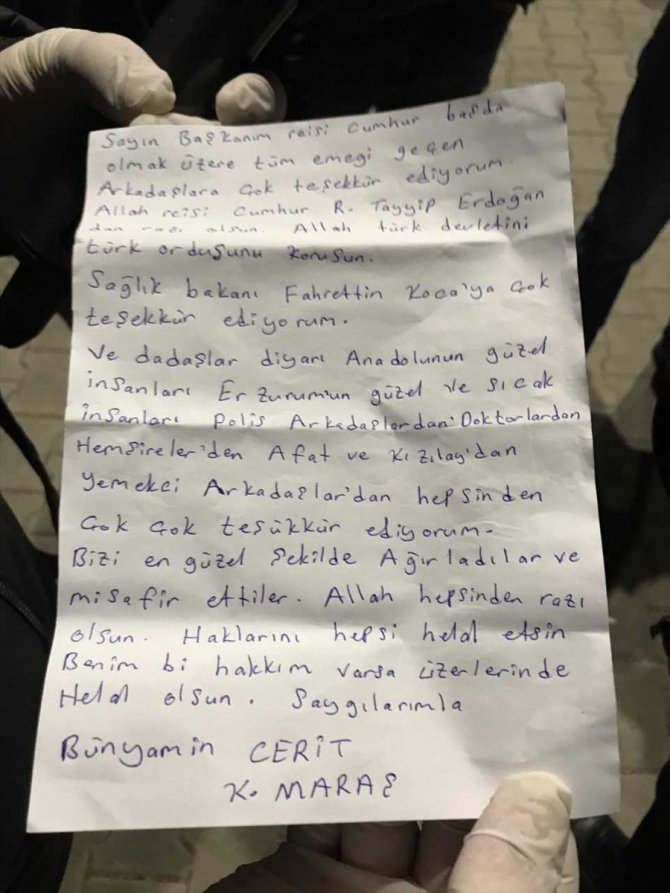 Sayın Başkanım reisi cumhur başda
olmak üzere tüm emegi geçen
Arkadaşlara çok teşekkür ediyorum.
Allah reisi cumhur R. Tayyip Erdoğan
dan razı olsun. Allah türk devletini
türk ordusunu korusun.
Sağlık bakanı Fahrettin Koca'ya çok
teşekkür ediyorum.
Ve dadaşlar diyarı Anadolunun güzel
insanları Erzurum'un güzel ve sıcak
insanları polis Arkadaşlardan Doktorlardan
Hemşireler'den Afat ve Kızılay'dan
yemekci Arkadaşlar'dan hepsinden
çok çok teşükkür ediyorum.
Bizi en güzel şekilde Ağırladılar ve
misafir ettiler. Allah hepsinden razı
olsun. Haklarını hepsi helal etsin
Benim bi hakkım varsa üzerlerinde
Helal olsun. Saygılarımla
Bünyamin CERİT
K. MARAŞ